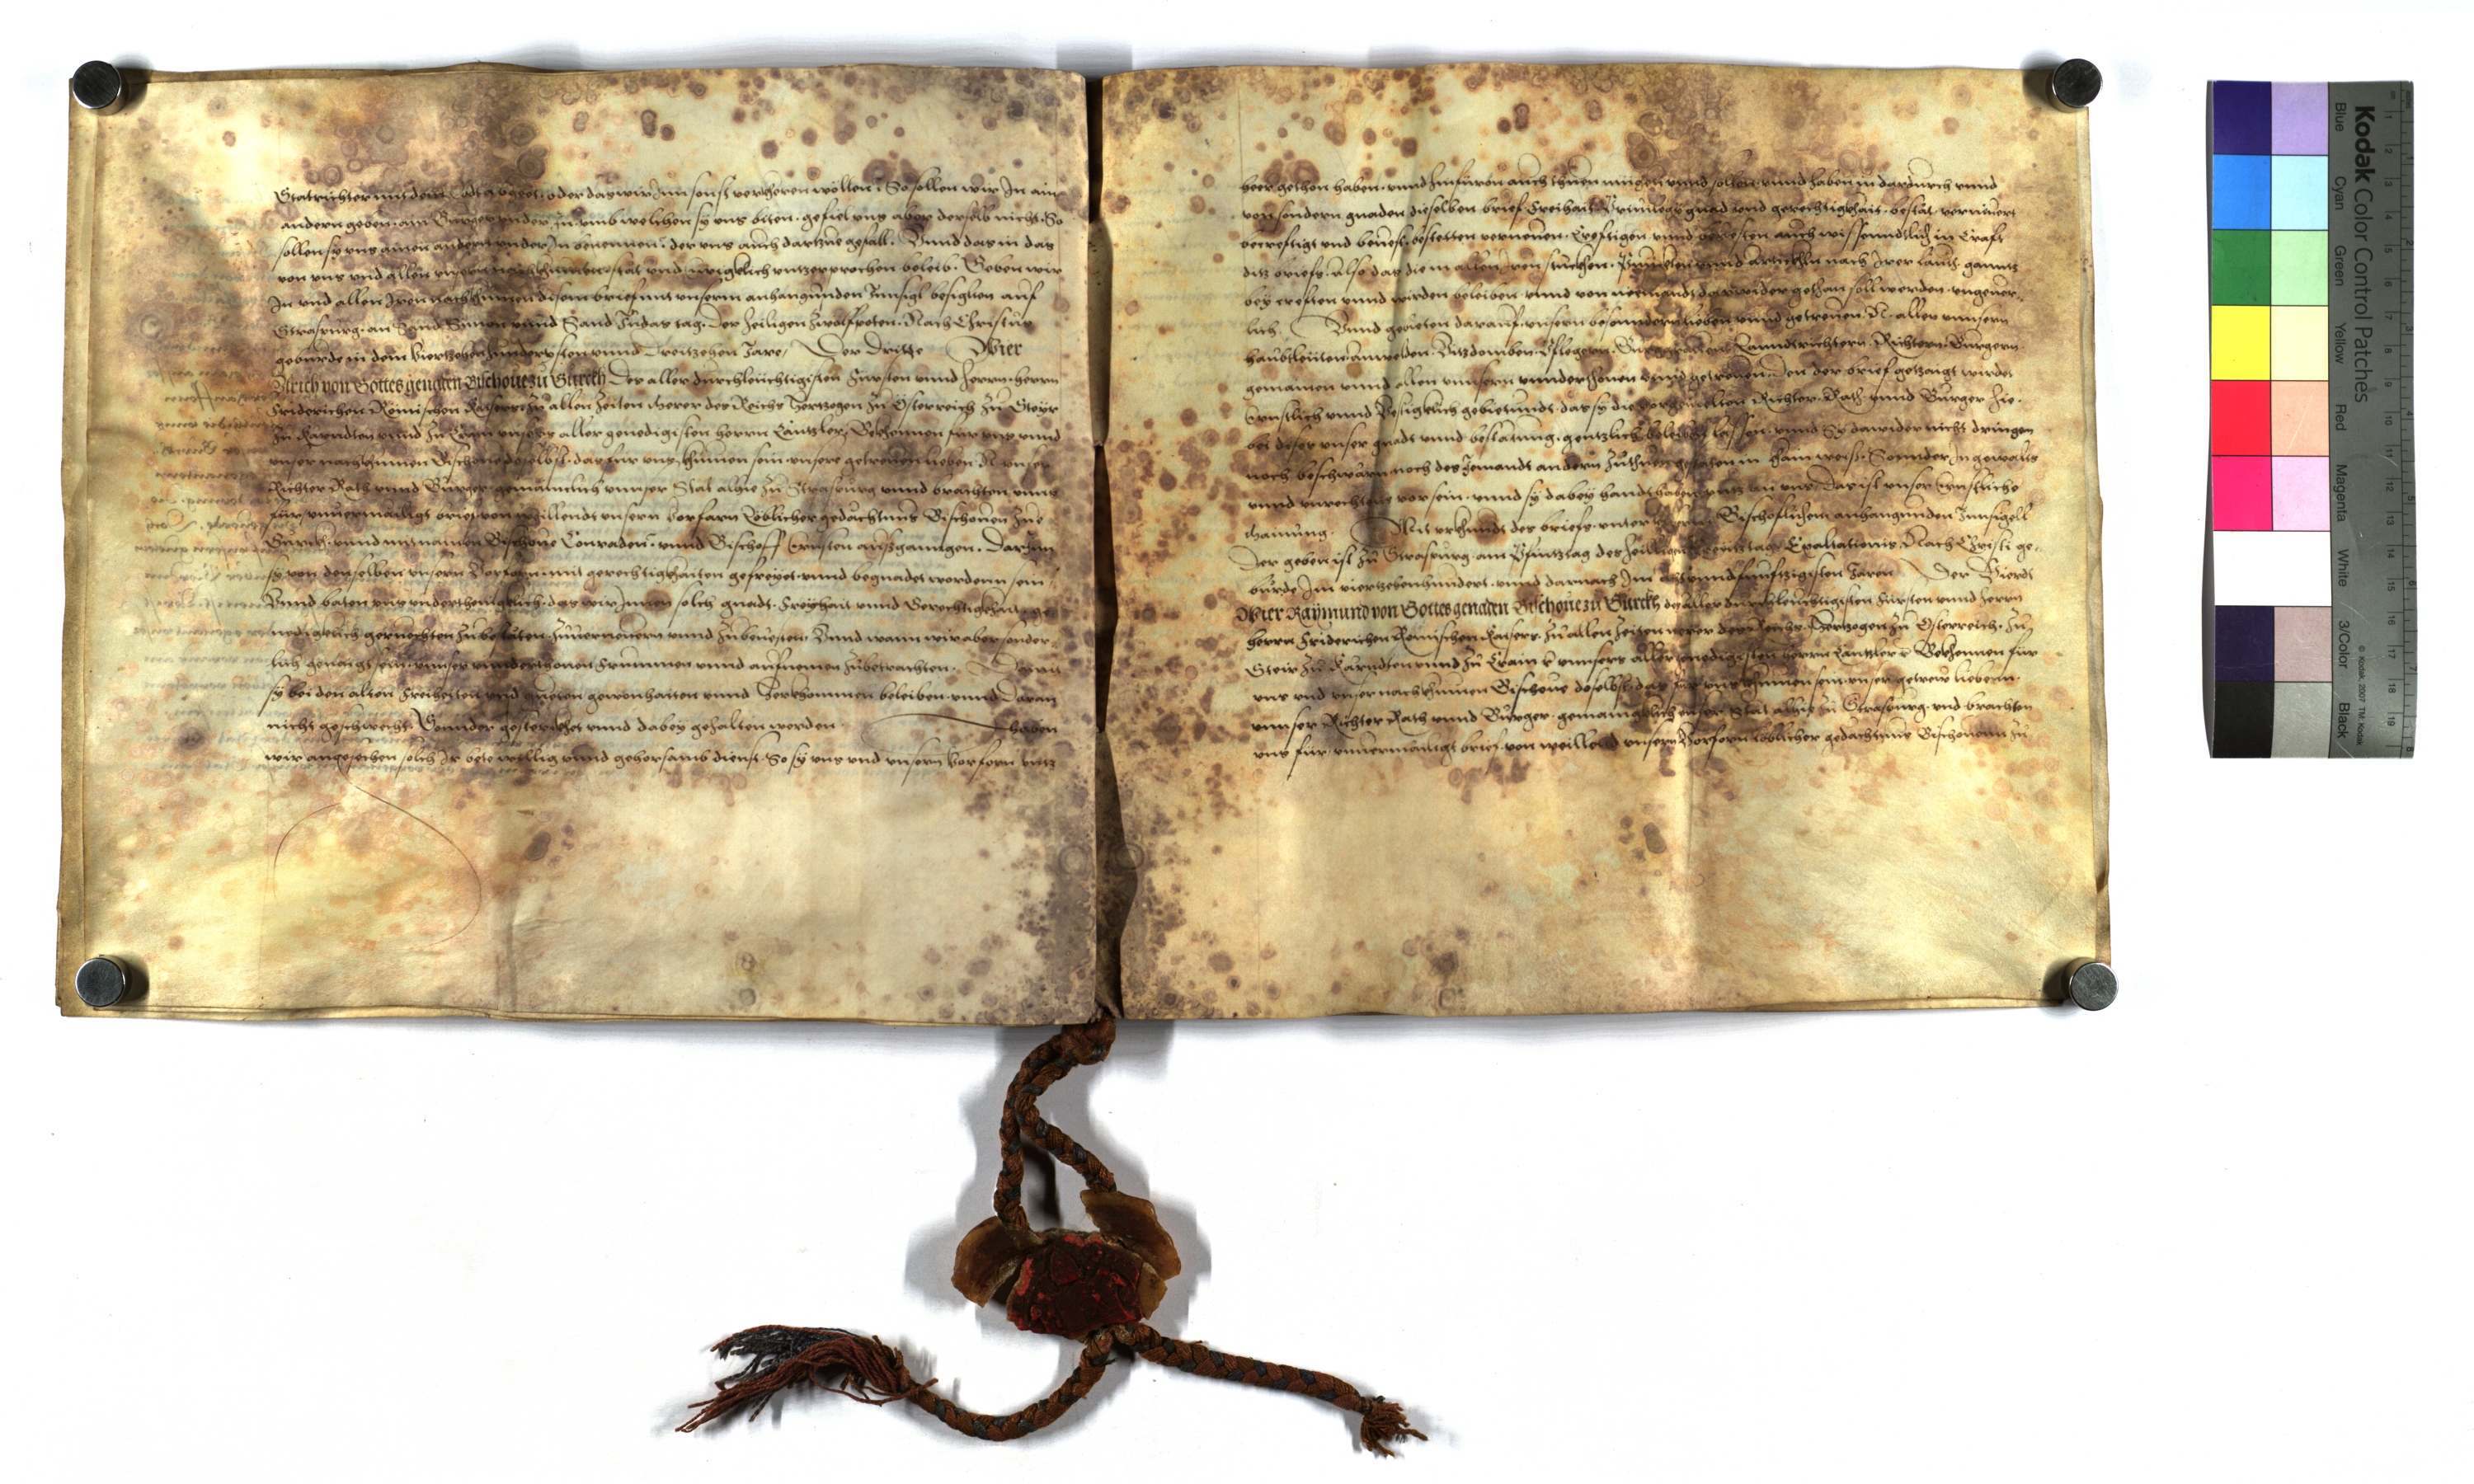 Statrichter mit dem Todt abgeet, oder das wir Inn sonst verkheren wöllen. So sollen wir In ain
andern geben. ain Burger under In, umb welichen sy uns biten. gefiel uns aber derselb nicht. So
sollen sy uns ainen andern under In benennen. der uns auch dartzue gefall. Unnd das in das
von uns und allen unsern nachkhumen stät und ewigklich untzerprochen beleib. Geben wir
In und allen Iren nachkhumen disem brief mit unserm anhangunden Innsigl besiglten auf
Strasburg. an Sand Simon unnd Sand Judas tag. Der heiligen Zwolfpoten. Nach Christus
geburde in dem viertzehenhundertisten unnd Dreitzehen Jare. Der Dritte Wier
Ulrich von Gottes genaden Bischove zu Gurckh Des aller durchleuchtigisten Fursten unnd herrn. herrn
Friderichen Römischen Kaisers zu allen Zeiten Merer des Reichs Hertzogen zu Österreich zu Steyr
zu Karndten unnd zu Crain unsers aller genedigisten herrn Cantzler. Bekhennen fur uns unnd
unser nachkhumen Bischove doselbst. das fur uns khumen sein unsere getreuen lieben. N. unser
Richter Rath unnd Burger gemainclich unnser Stat alhie zu Strasburg unnd brachten unns
fur unvermailigt brief von weillendt unsern Vorfarn Löblicher gedächtnus Bischoven zue
Gurckh. unnd mit namen Bischove Conraden. unnd Bischoff Ernsten außganngen. Darinn
sy von denselben unsern Vorfarn mit gerechtigkhaiten gefreyet unnd begnadet wordenn sein.
Unnd baten uns undertheniglich. das wir Innen solch gnadt. Freyhait unnd Gerechtigkhait ge-
nedigklich geruechten zu bestäten. zuverneuern unnd zubevesten. Unnd wann wir aber sonder-
lich genaigt sein. unnser unnderthonen Frummen unnd aufnemen zubetrachten. Damit
sy bei den alten Freiheiten und gueten gewonhaiten unnd Herkhommen beleiben unnd daran
nicht geschwecht. Sonnder gestercket unnd dabey gehalten werden haben
wir angesehen solch Ir bete willig unnd gehorsamb dienst. So sy uns und unsern Vorforn untz
heer gethon haben. unnd hinfuron auch thuen mugen unnd sollen. unnd haben in dardurch unnd
von sondern gnaden dieselben brief Freihait Privilegy gnad und gerechtigkhait. bestät verneuert
becreftigt und bevest. bestetten verneuen. Creftigen. unnd bevesten auch wissenndtlich in Craft
ditz briefs. Also das die in allen Iren stuckhen. Puncten unnd Artickhln nach Irer Lautt. ganntz
bey creften unnd wirden beleiben. unnd von niemandt darwider gethan soll werden. ungever-
lich. Unnd gebieten darauf. unsern besonndern lieben unnd getreuen. N. allen unnsern
haubtleuten. anwelden. Vitzdomben. Pflegern. Burggraven. Lanndtrichtern. Richtern. Burgern.
gemainen unnd allen unnsern unnderthonen unnd getreuen. Den der brief getzaigt wirdet
Ernstlich unnd Vesigklich gebietundt. das sy die vorgemelten Richter. Rath. unnd Burger hie.
bei diser unser gnadt unnd bestätung. gentzlich beleiben lassen. unnd Sy dawider nicht dringen
noch beschwärn noch des Jemandt andern zuthuen gestaten in khain weiß. Sonnder In gewalts
unnd unrechtens vor sein. unnd sy dabey handthaben untz an uns. Das ist unser Ernstliche
mainung. Mit urkhundt des briefs. unter unserm Bischoflichem anhangunden Innsigell
Der geben ist zu Strasburg. am Pfintztag des heilligen Creutztag Exaltationis. Nach Christi ge-
burde Im viertzehenhundert. unnd darnach Im unndfunftzigisten Jaren. Der Vierdt
Wier Raymund von Gottes genaden Bischove zu Gurckh des aller durchleuchtigisten Fursten unnd herrn
herrn Friderichen Römischen Kaisers. zu allen Zeiten merer des Reichs. Hertzogen zu Österreich. zu
Steir zu Kärndten unnd zu Crain etc unnsers aller genedigisten herrn Cantzler etc Bekhennen fur
uns und unser nachkhumen Bischove doselbst. das fur uns khumen sein. unser getreue lieben.
unnser Richter Rath unnd Burger. gemaingklich unser Stat alhie zu Strasburg. und brachten
uns fur. unvermailigt brief. von weillend unsern Vorforn löblicher gedachtnus Bischoven zu
Kodak Color Control Patches
Blue Cyan Green Yellow Red Magenta White 3/Color Black
© Kodak, 2007 TM: Kodak